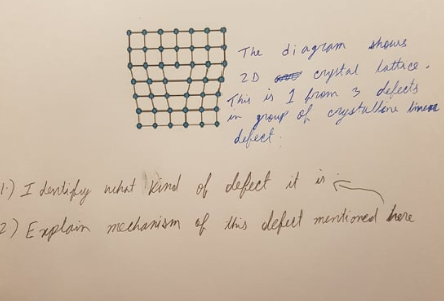 The diagram shows
2D crystal lattace.
This is 1 from 3 defects
in group of crystalline linear
defect.
1.) Identify what kind of defect it is
2) Explain mechanism of this defect mentioned here